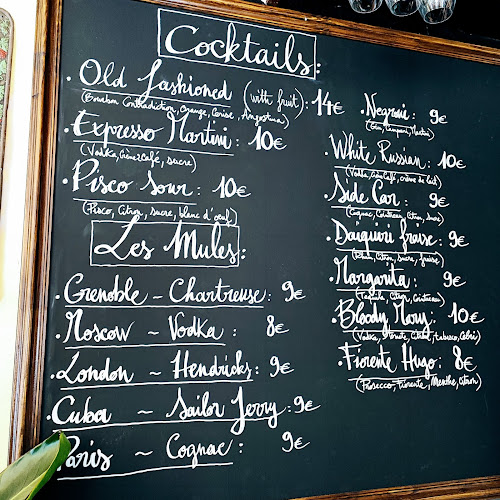 Cocktails:
· Old Fashioned (with fruit): 14€
(Bourbon Contradiction, Orange, Cerise, Angostura)
· Expresso Martini: 10€
(Vodka, Café, sucre)
· Pisco Sour: 10€
(Pisco, Citron, sucre, blanc d'oeuf)
Les Mules:
· Grenoble ~ Chartreuse: 9€
· Moscow ~ Vodka: 8€
· London ~ Hendricks: 9€
· Cuba ~ Sailor Jerry: 9€
Paris ~ Cognac: 9€
· Negroni: 9€
(Gin, Campari, Martini)
· White Russian: 10€
(Vodka, Café, crème de lait)
· Side Car: 9€
(Cognac, Cointreau, Citron, sucre)
· Daiquiri fraise: 9€
(Rhum, Citron, sucre, fraise)
· Margarita: 9€
(Tequila, Citron, Cointreau)
· Bloody Mary: 10€
(Vodka, Tomate, Citron, tabasco, Céleri)
· Fiorente Hugo: 8€
(Prosecco, Fiorente, Menthe, Citron)